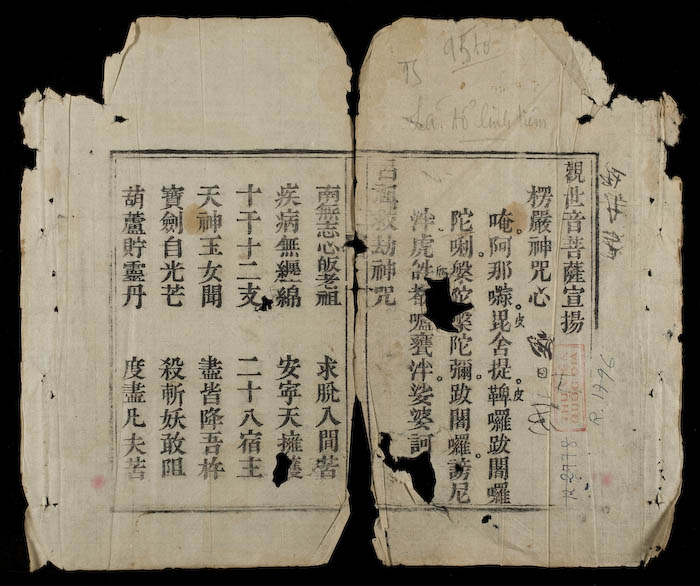 觀世音菩薩宣揚
楞嚴神咒心
唵。阿那嚟。毘舍提。鞞囉跋闍囉
陀唎。槃陀槃陀彌。跋闍囉。謗尼
泮。虎𤙖都嚧甕泮。娑婆訶
救劫神咒
南無志心皈老祖 求脫入間苦
疾病無纏綿 安寧天擁護
十干十二支 二十八宿主
天神玉女聞 盡皆降吾杵
寶劍自光芒 殺斬妖敢阻
葫蘆貯靈丹 度盡凡夫苦